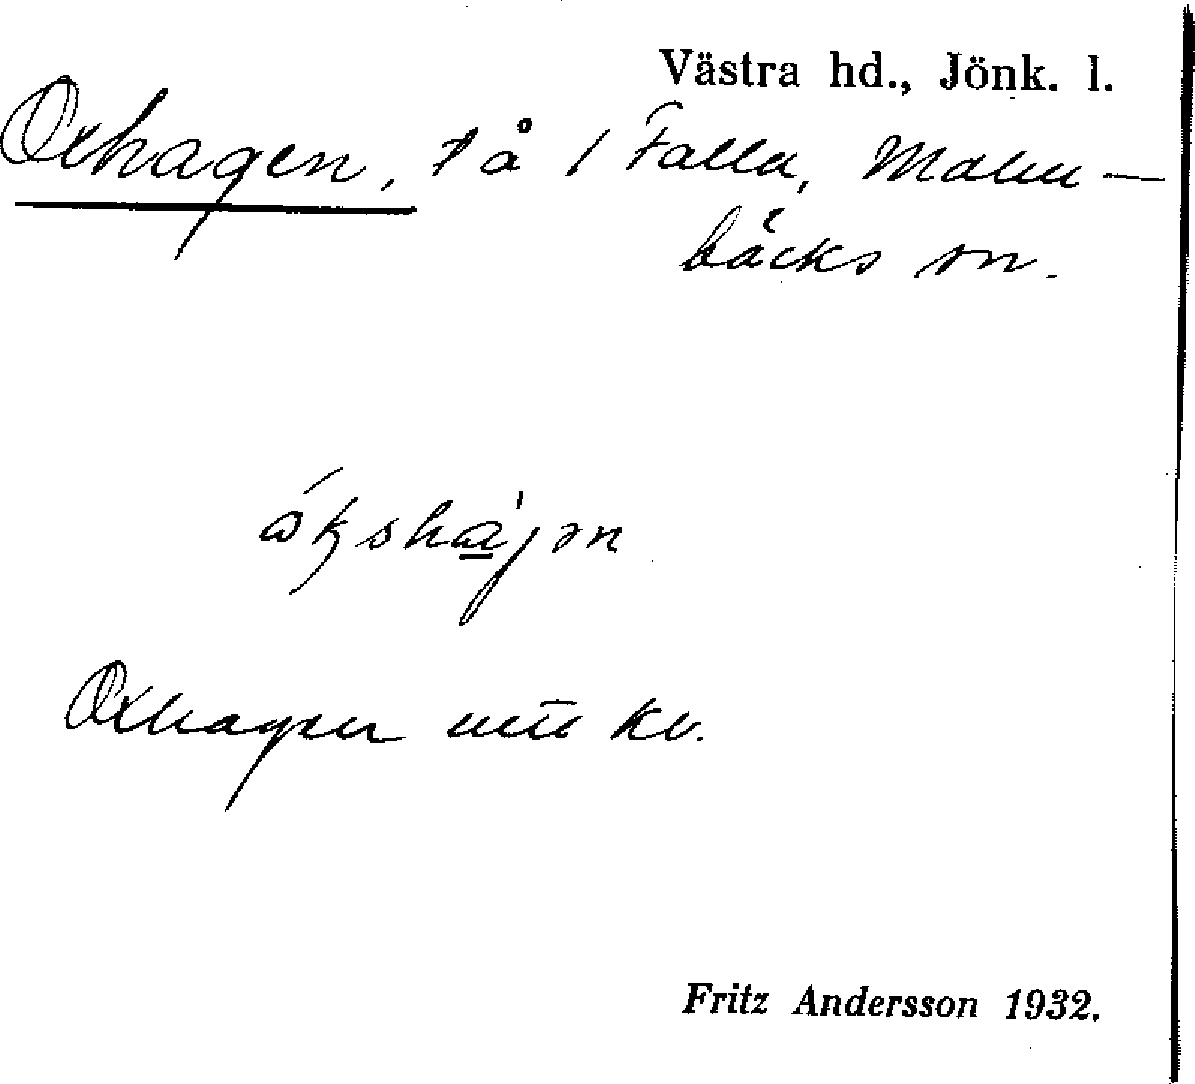 Västra hd., Jönk. l.
Oxhagen, t å 1 Falla, Malm-
bäcks sn.
ókshàjən
Oxhagen kv.
Fritz Andersson 1932.